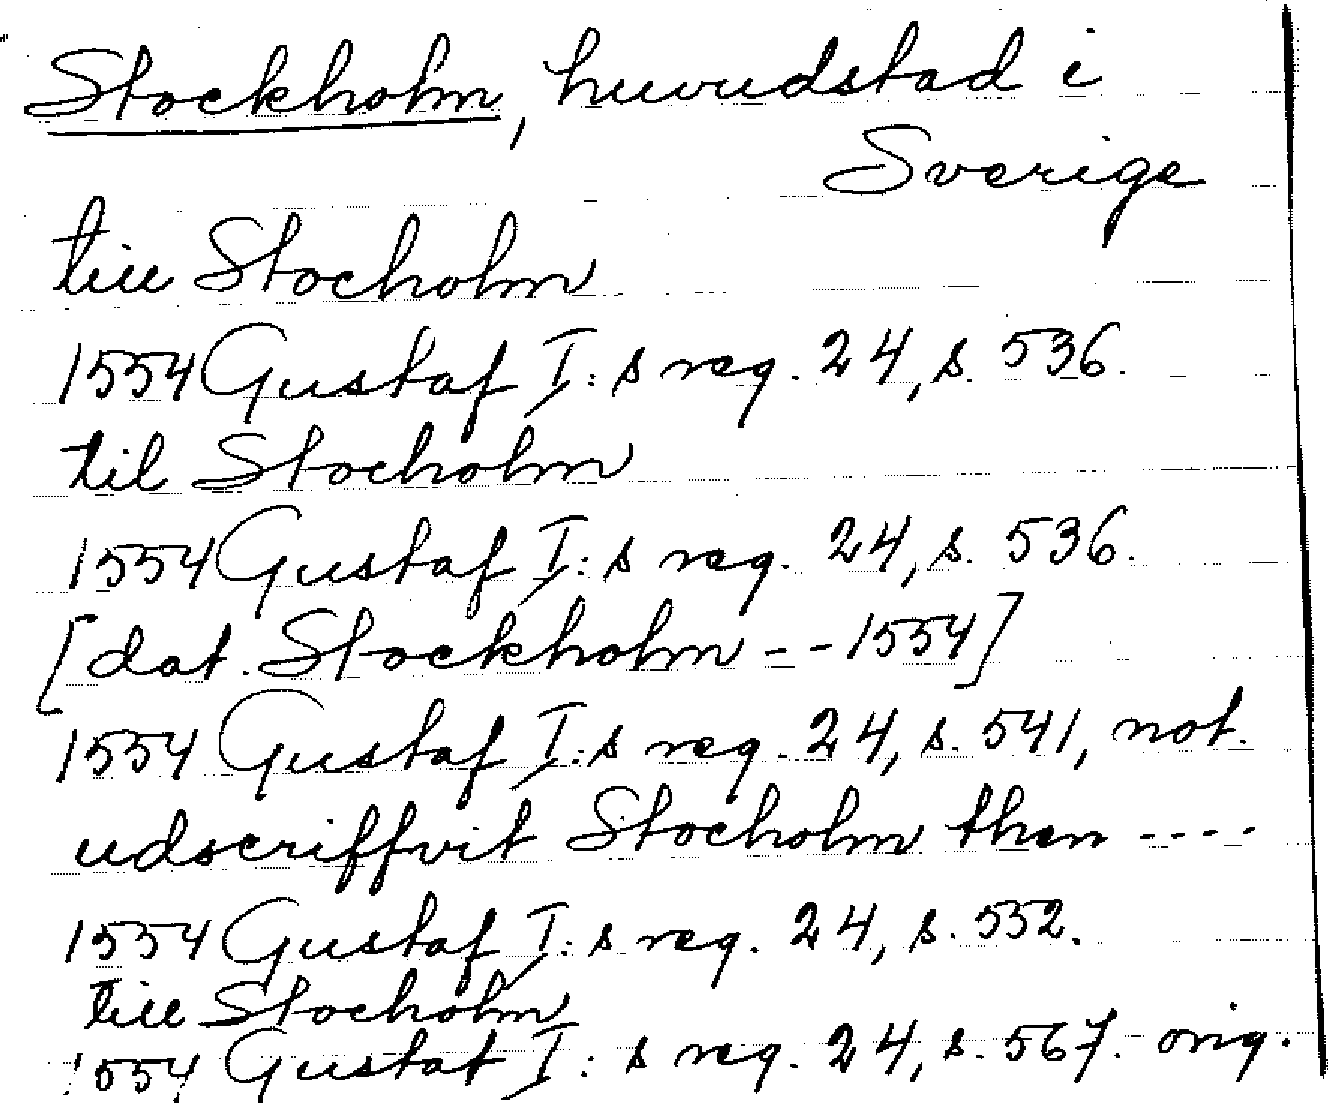 Stockholm, huvudstad i
Sverige
till Stocholm
1554 Gustaf I:s reg. 24, s. 536.
til Stocholm
1554 Gustaf I:s reg. 24, s. 536.
[dat. Stockholm - - 1554]
1554 Gustaf I:s reg. 24, s. 541, not.
udscriffvit Stocholm then ----
1554 Gustaf I:s reg. 24, s. 552.
till Stocholm
1554 Gustaf I:s reg. 24, s. 567. orig.